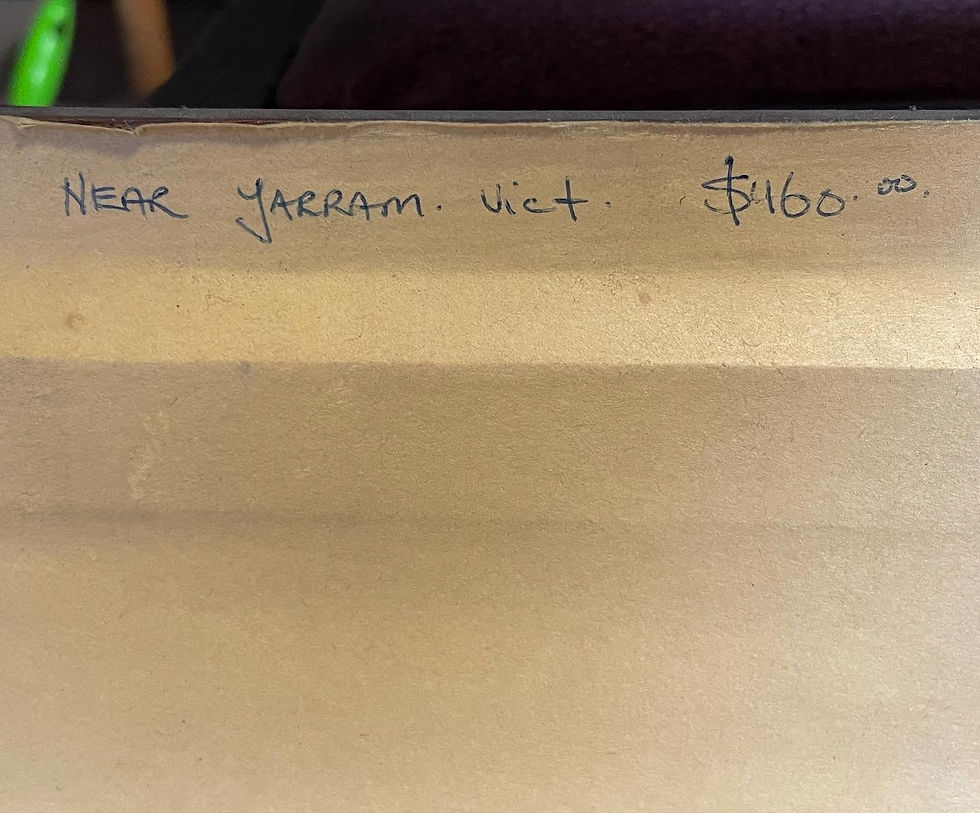 NEAR YARRAM. Vict. $160.00.